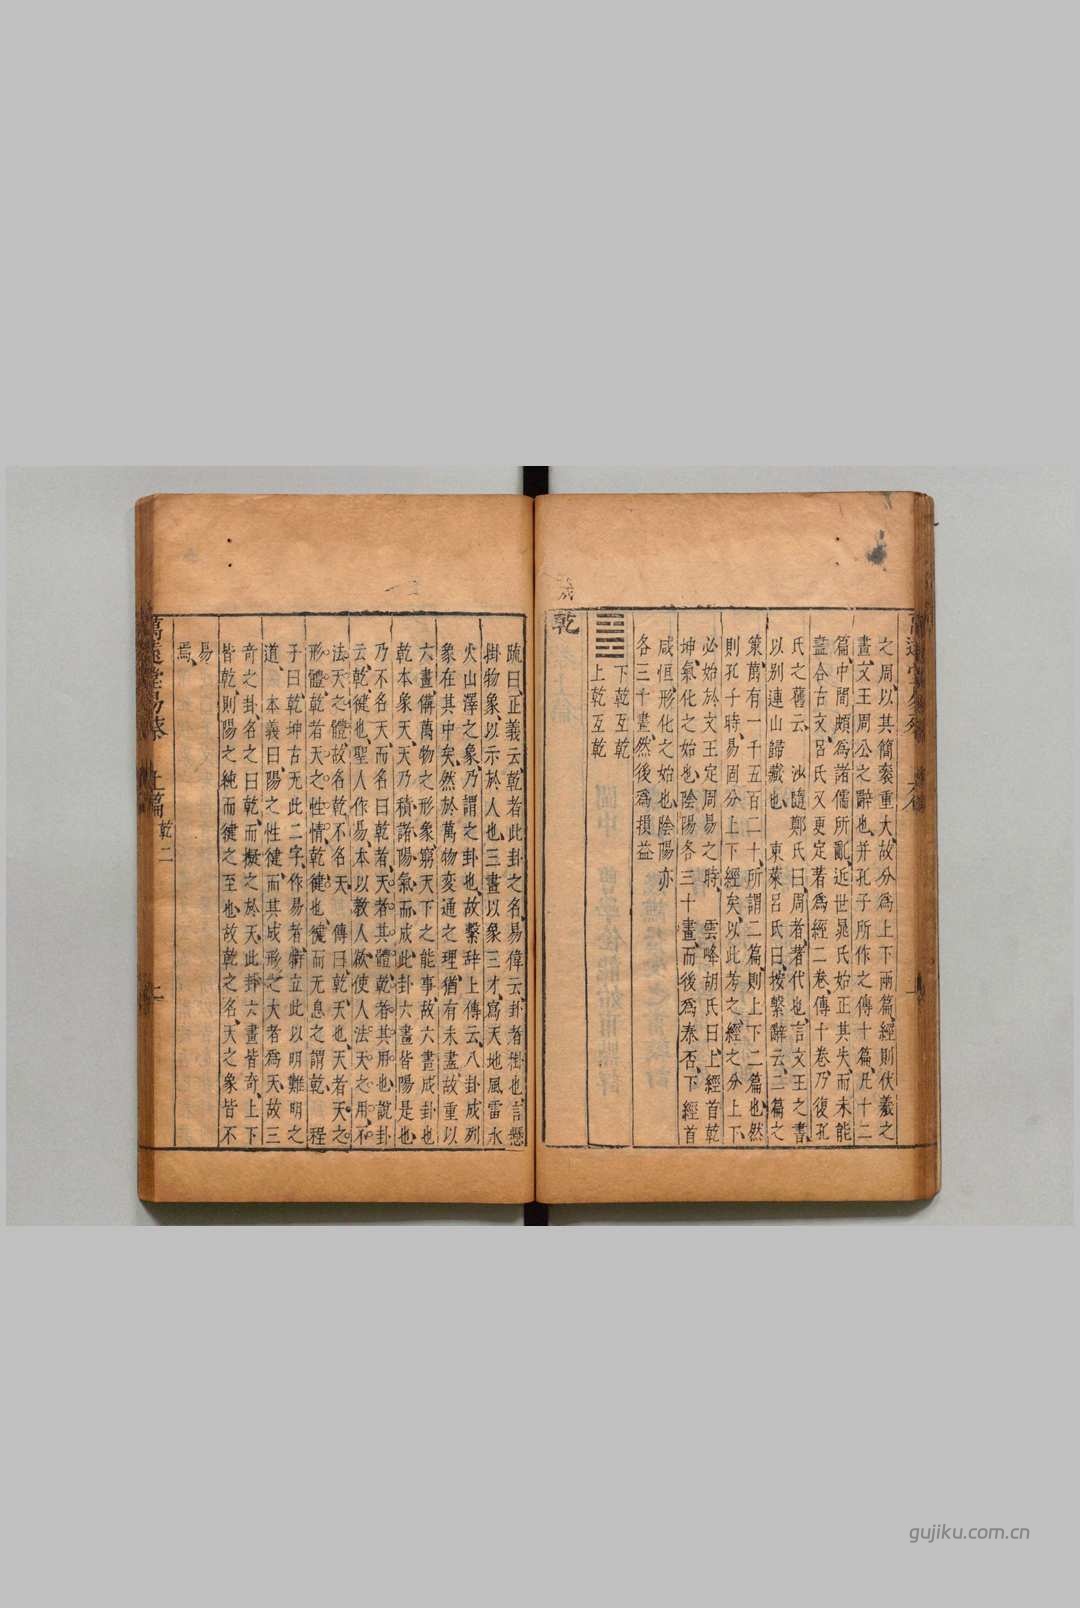 之周、以其簡袠重大、故分爲上下兩篇、經則伏羲之
畫、文王周公之辭也、并孔子所作之傳十篇、凡十二
篇、中間頗爲諸儒所亂、近世晁氏始正其失、而未能
盡合古文、呂氏又更定著爲經二卷、傳十卷、乃復孔
氏之舊云、沙隨鄭氏曰、周者、著代也、言文王之書、
以别連山歸藏也、東萊呂氏曰、按繫辭云、二篇之
策、萬有一千五百二十、所謂二篇、則上下二篇也、然
則孔子時、易固分上下經矣、以此考之、經之分上下、
必始於文王定周易之時、雲峰胡氏曰、上經首乾
坤、氣化之始也、陰陽各三十畫、而後爲泰否、下經首
咸恒、形化之始也、陰陽亦
各三十畫、然後爲損益
下乾互乾
上乾互乾
乾
疏曰、正義云、乾者此卦之名、易偉云、卦者掛也、言懸
掛物象、以示於人也、三畫以象三才、寫天地風雷水
火山澤之象、乃謂之卦也、故繫辞上傳云、八卦成列、
象在其中矣、然於萬物変通之理、猶有未盡、故重以
六畫、備萬物之形象、窮天下之能事、故六畫成卦也、
乾本象天、天乃積諸陽氣、而成此卦六畫皆陽是也、
乃不名天、而名曰乾者、天者其體、乾者其用也、說卦
云、乾健也、聖人作易、本以教人、欲使人法天之用、不
法天之體、故名乾不名天、傳曰、乾天也、天者天之
形體、乾者天之性情、乾、健也、健而无息之謂乾、程
子曰、乾坤古无此二字、作易者特立此以明難明之
道、本義曰、陽之性健、而其成形之大者爲天、故三
奇之卦、名之曰乾、而擬之於天、此卦六畫皆奇、上下
皆乾、則陽之純而健之至也、故乾之名、天之象、皆不
易
焉、
萬遠堂易蔡 上篇 乾 二
gujiku.com.cn